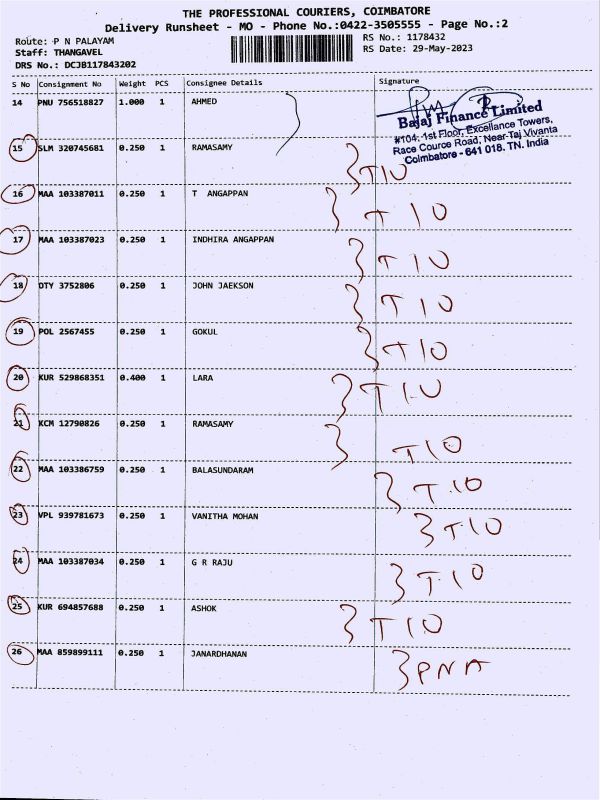 THE PROFESSIONAL COURIERS, COIMBATORE
Delivery Runsheet - MO - Phone No.:0422-3505555 - Page No.:2
Route: P N PALAYAM
RS No.: 1178432
Staff: THANGAVEL
RS Date: 29-May-2023
DRS No.: DCJB117843202
S No Consignment No Weight PCS Consignee Details Signature
14 PNU 756518827 1.000 1 AHMED
Bajaj Finance Limited
#104, 1st Floor, Excellance Towers,
Race Cource Road, Near-Taj Vivanta
Coimbatore - 641 018. TN. India
15 SLM 320745681 0.250 1 RAMASAMY T10
16 MAA 103387011 0.250 1 T ANGAPPAN T10
17 MAA 103387023 0.250 1 INDHIRA ANGAPPAN T10
18 DTY 3752806 0.250 1 JOHN JAEKSON T10
19 POL 2567455 0.250 1 GOKUL T10
20 KUR 529868351 0.400 1 LARA T10
21 KCM 12790826 0.250 1 RAMASAMY T10
22 MAA 103386759 0.250 1 BALASUNDARAM T10
23 VPL 939781673 0.250 1 VANITHA MOHAN T10
24 MAA 103387034 0.250 1 G R RAJU T10
25 KUR 694857688 0.250 1 ASHOK T10
26 MAA 859899111 0.250 1 JANARDHANAN PNA